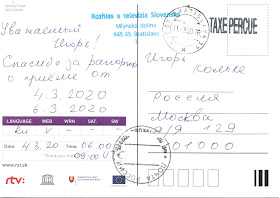 Rozhlas a televízia Slovenska
Mlynská dolina
845 45 Bratislava
TAXE PERCUE
Уважаемый
Игорь!
Спасибо за рапорты
о приёме от
4.3.2020
6.3.2020
LANGUAGE WEB WRN SAT. SW
Ru V - - -
DATE 4.3.20 TIME 06.00
09.00 V
www.rsi.sk
rtv:
Игорь
Россия
Москва
а/я 129
101000